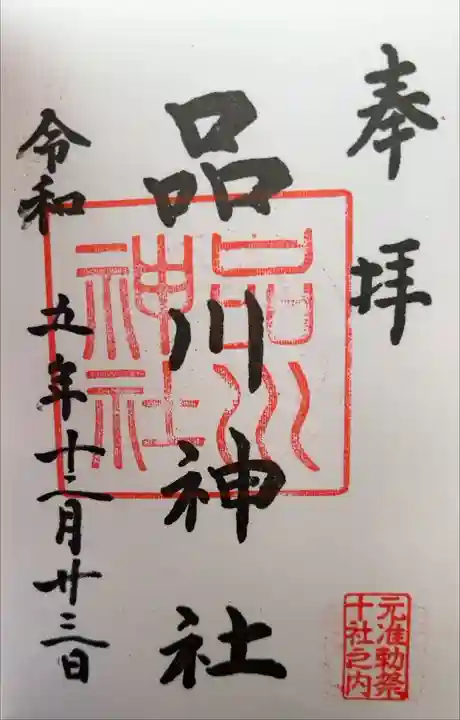 奉拝
品川神社
品川神社
令和五年十二月廿三日
元准勅祭
十社之内